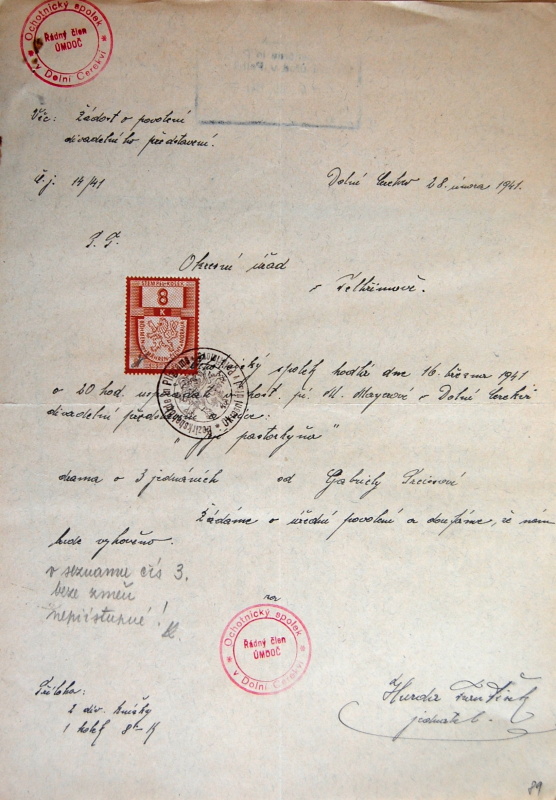 Ochotnický spolek
Řádný člen
ÚMDOČ
v Dolní Cerekvi
Věc: Žádost o povolení
divadelního představení.
Č.j. 14/41
Dolní Cerekev 28. února 1941.
P. T.
Okresní úřad
v Pelhřimově.
8
K
spolek hodlá dne 16. března 1941
o 20 hod. uspořádati v host. pí. M. Mayerové v Dolní Cerekvi
divadelní představení
"Její pastorkyňa"
drama o 3 jednáních od Gabriely Preissové
Žádáme o úřední povolení a doufáme, že nám
bude vyhověno.
v seznamu čís 3.
beze změn
nepřístupné!
Ochotnický spolek
Řádný člen
ÚMDOČ
v Dolní Cerekvi
Příloha:
2 div. knížky
1 kolek 8 K
Hurda František
jednatel.
89